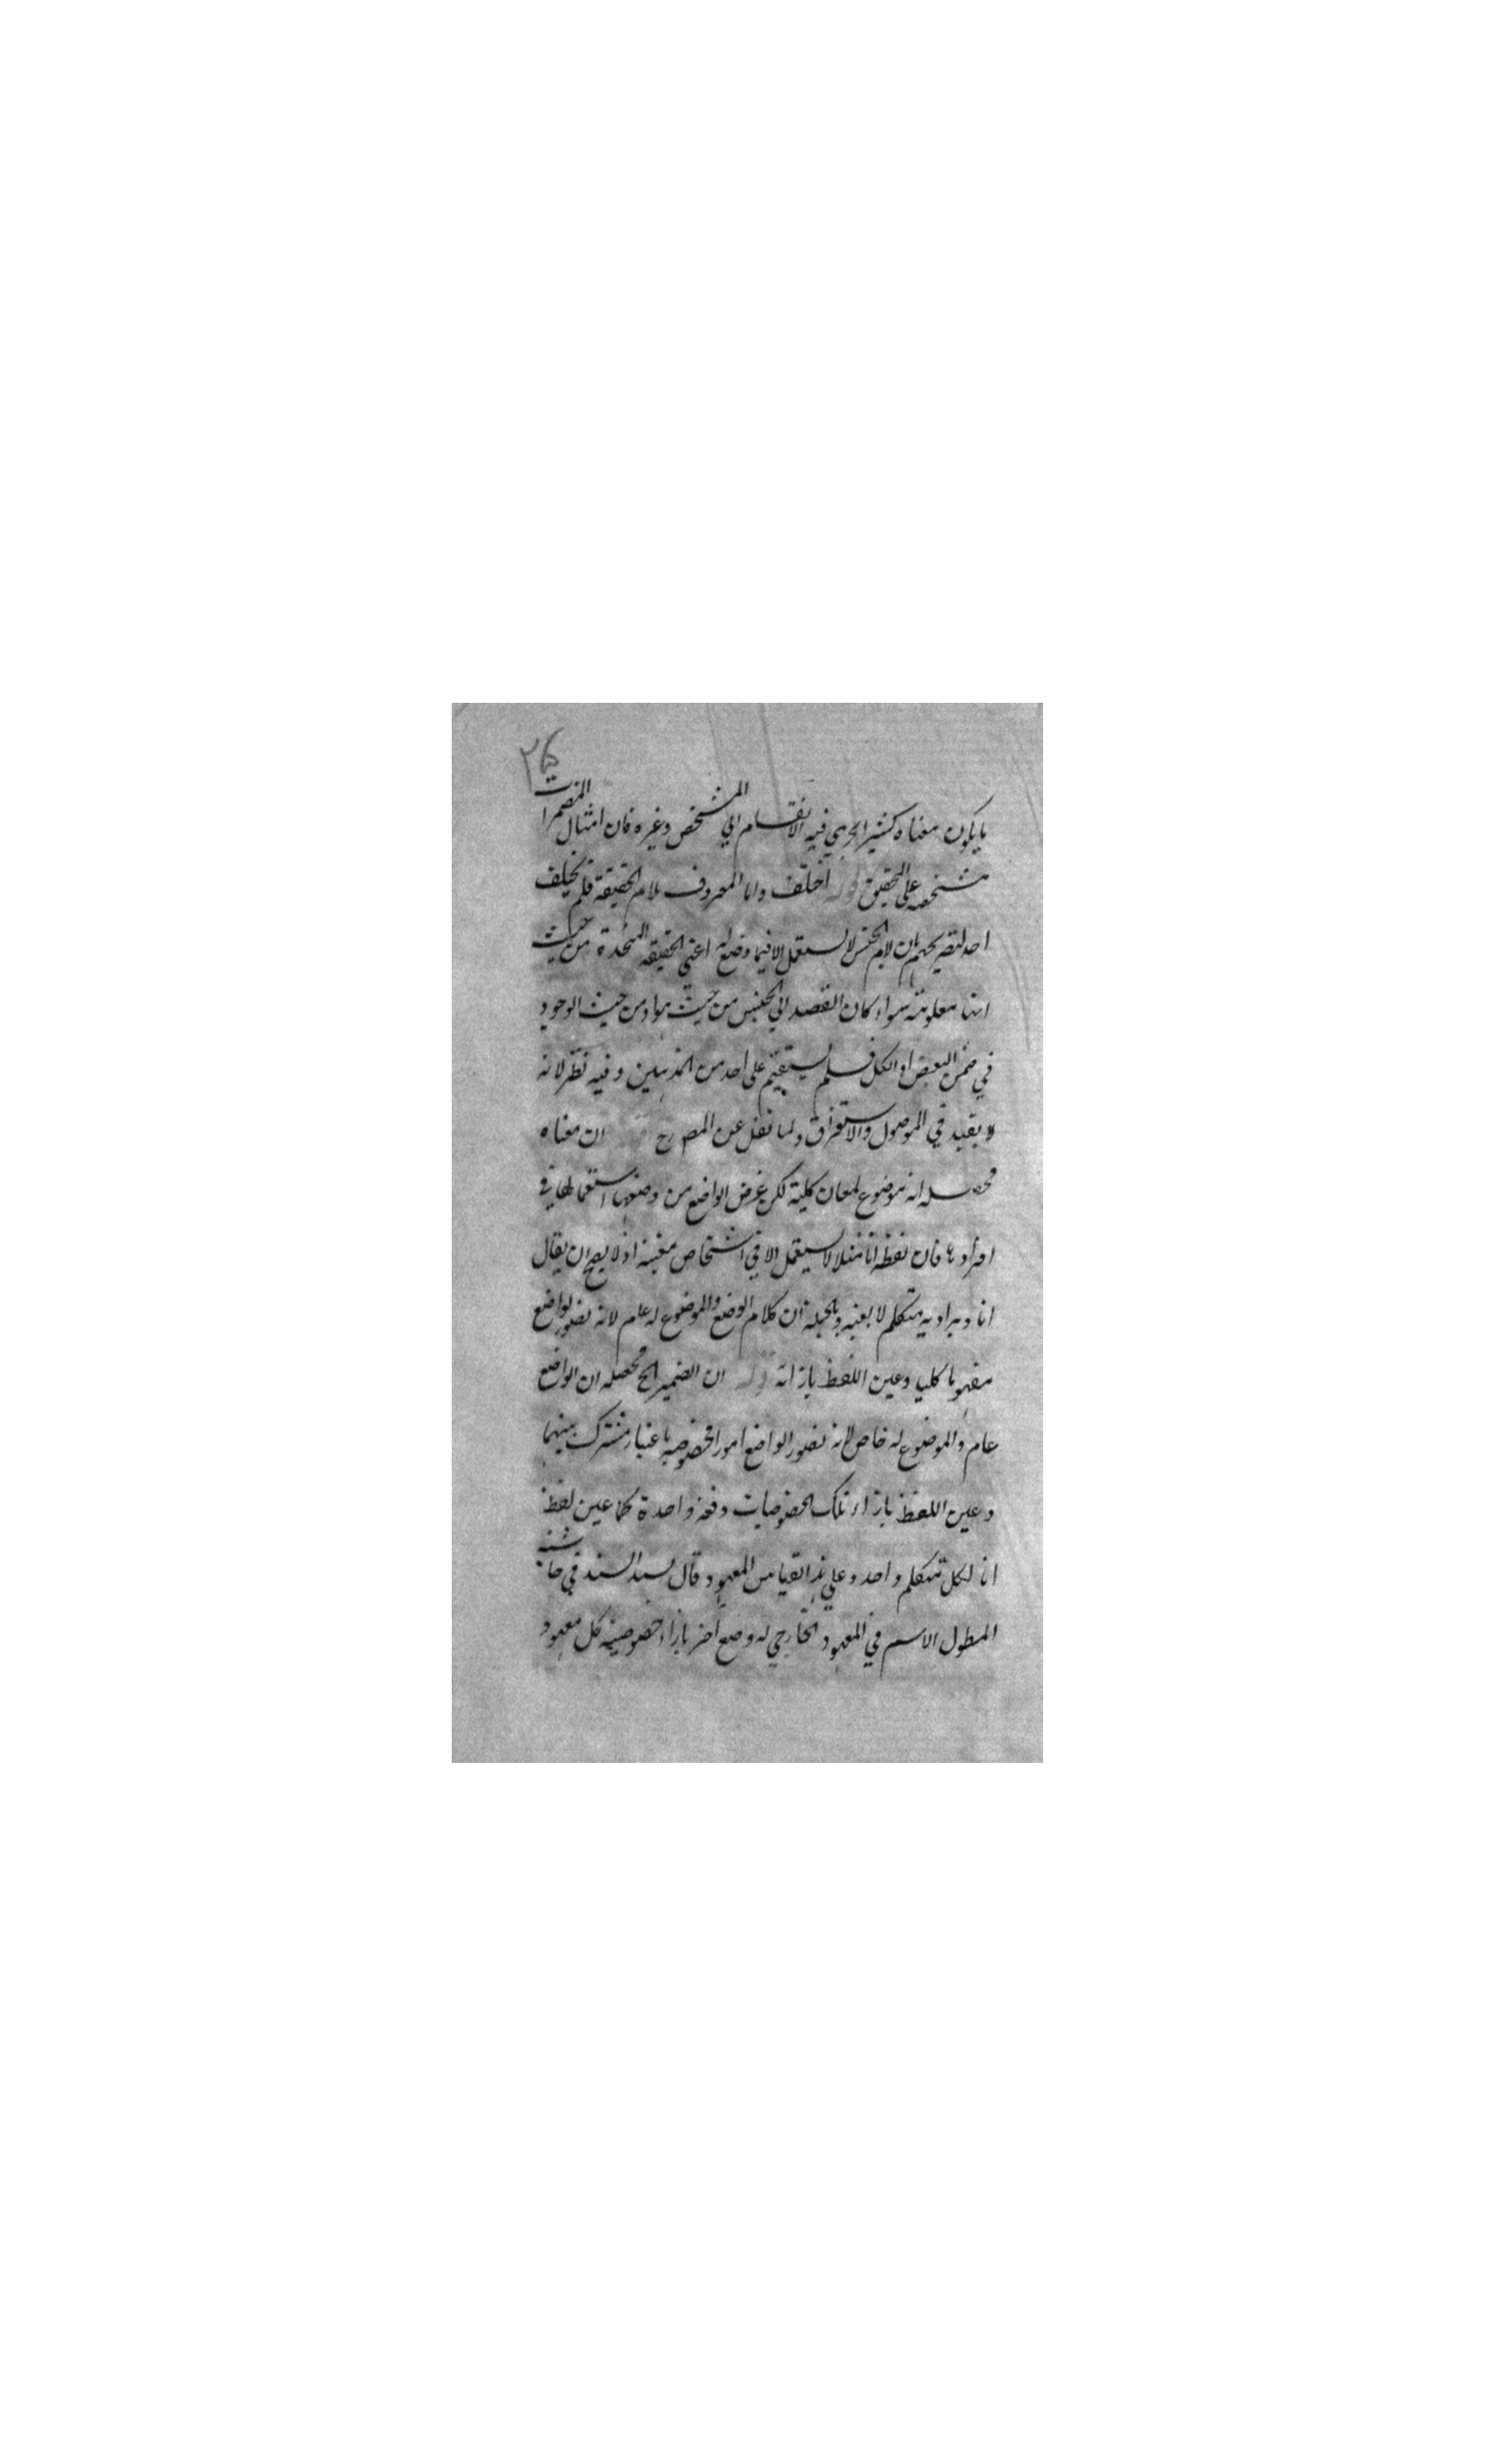 ما يكون معناه كثيرا لجرى فيه الانقسام الى المشخص وغيره فان امثال المضمرات
مشخصة على التحقيق قوله اختلف واما المعروف بلام الحقيقة فلم يختلف
احد لتصريحهم بان لام الجنس لا يستعمل الا فيما وضع له اعنى الحقيقة المتحدة من حيث
انها معلومة سواء كان القصد الى الجنس من حيث هو او من حيث الوجود
في ضمن البعض او الكل فلم يستقيم على احد من المذهبين وفيه نظر لانه
لا يفيد في الموصول والاستغراق ولما نقل عن المص رح ان معناه
محصله انه موضوع لمعان كلية لكن غرض الواضع من وضعها استعمالها في
افرادها فان لفظة انا مثلا لا يستعمل الا في اشخاص معينة اذ لا يصح ان يقال
انا ويراد به متكلم لا بعينه وبالجملة ان كلام الوضع والموضوع له عام لانه تصور الواضع
مفهوما كليا وعين اللفظ بازائه قوله ان الضمير الخ محصله ان الواضع
عام والموضوع له خاص لانه تصور الواضع امورا مخصوصة باعتبار مشترك بينهما
وعين اللفظ بازاء تلك الخصوصيات دفعة واحدة كما عين لفظ
انا لكل متكلم واحد وعلى هذا القياس المعهود قال سيد السند في حاشية
المطول الاسم في المعهود الخارجي له وضع آخر بازاء خصوصية كل معهود